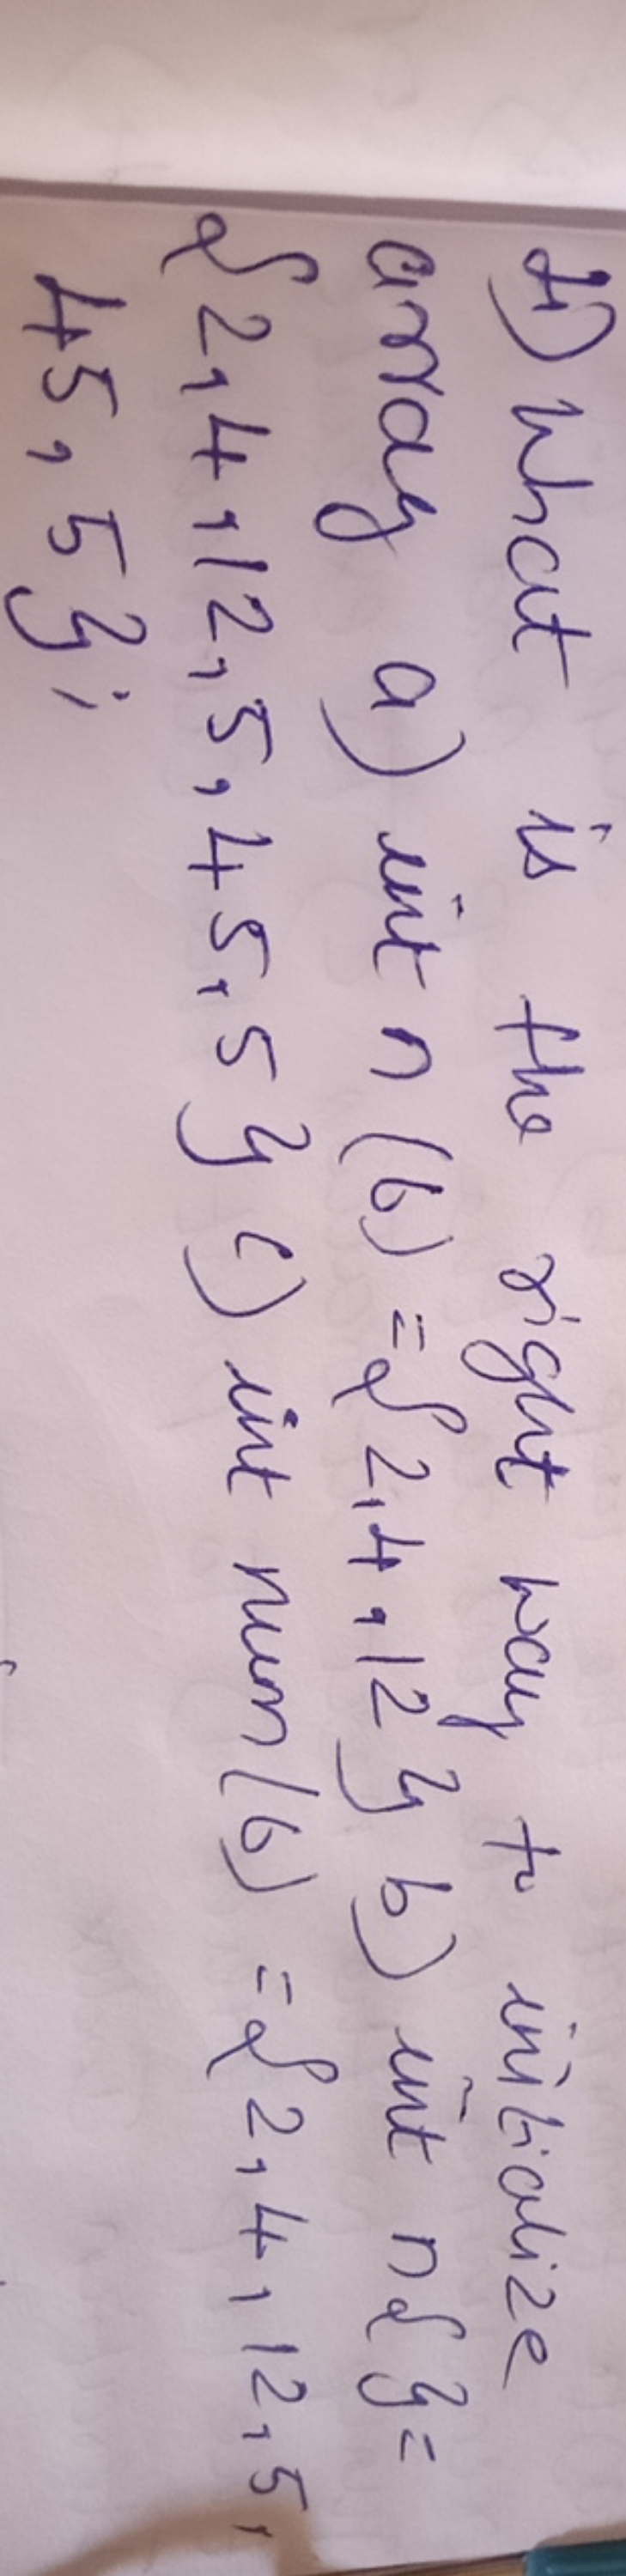 1) What is the right way to initialize
array a) int n (6) = {2,4,12} b) int n{}=
{2,4,12,5,45,5} c) int num(6) = {2,4,12,5,
45,5};